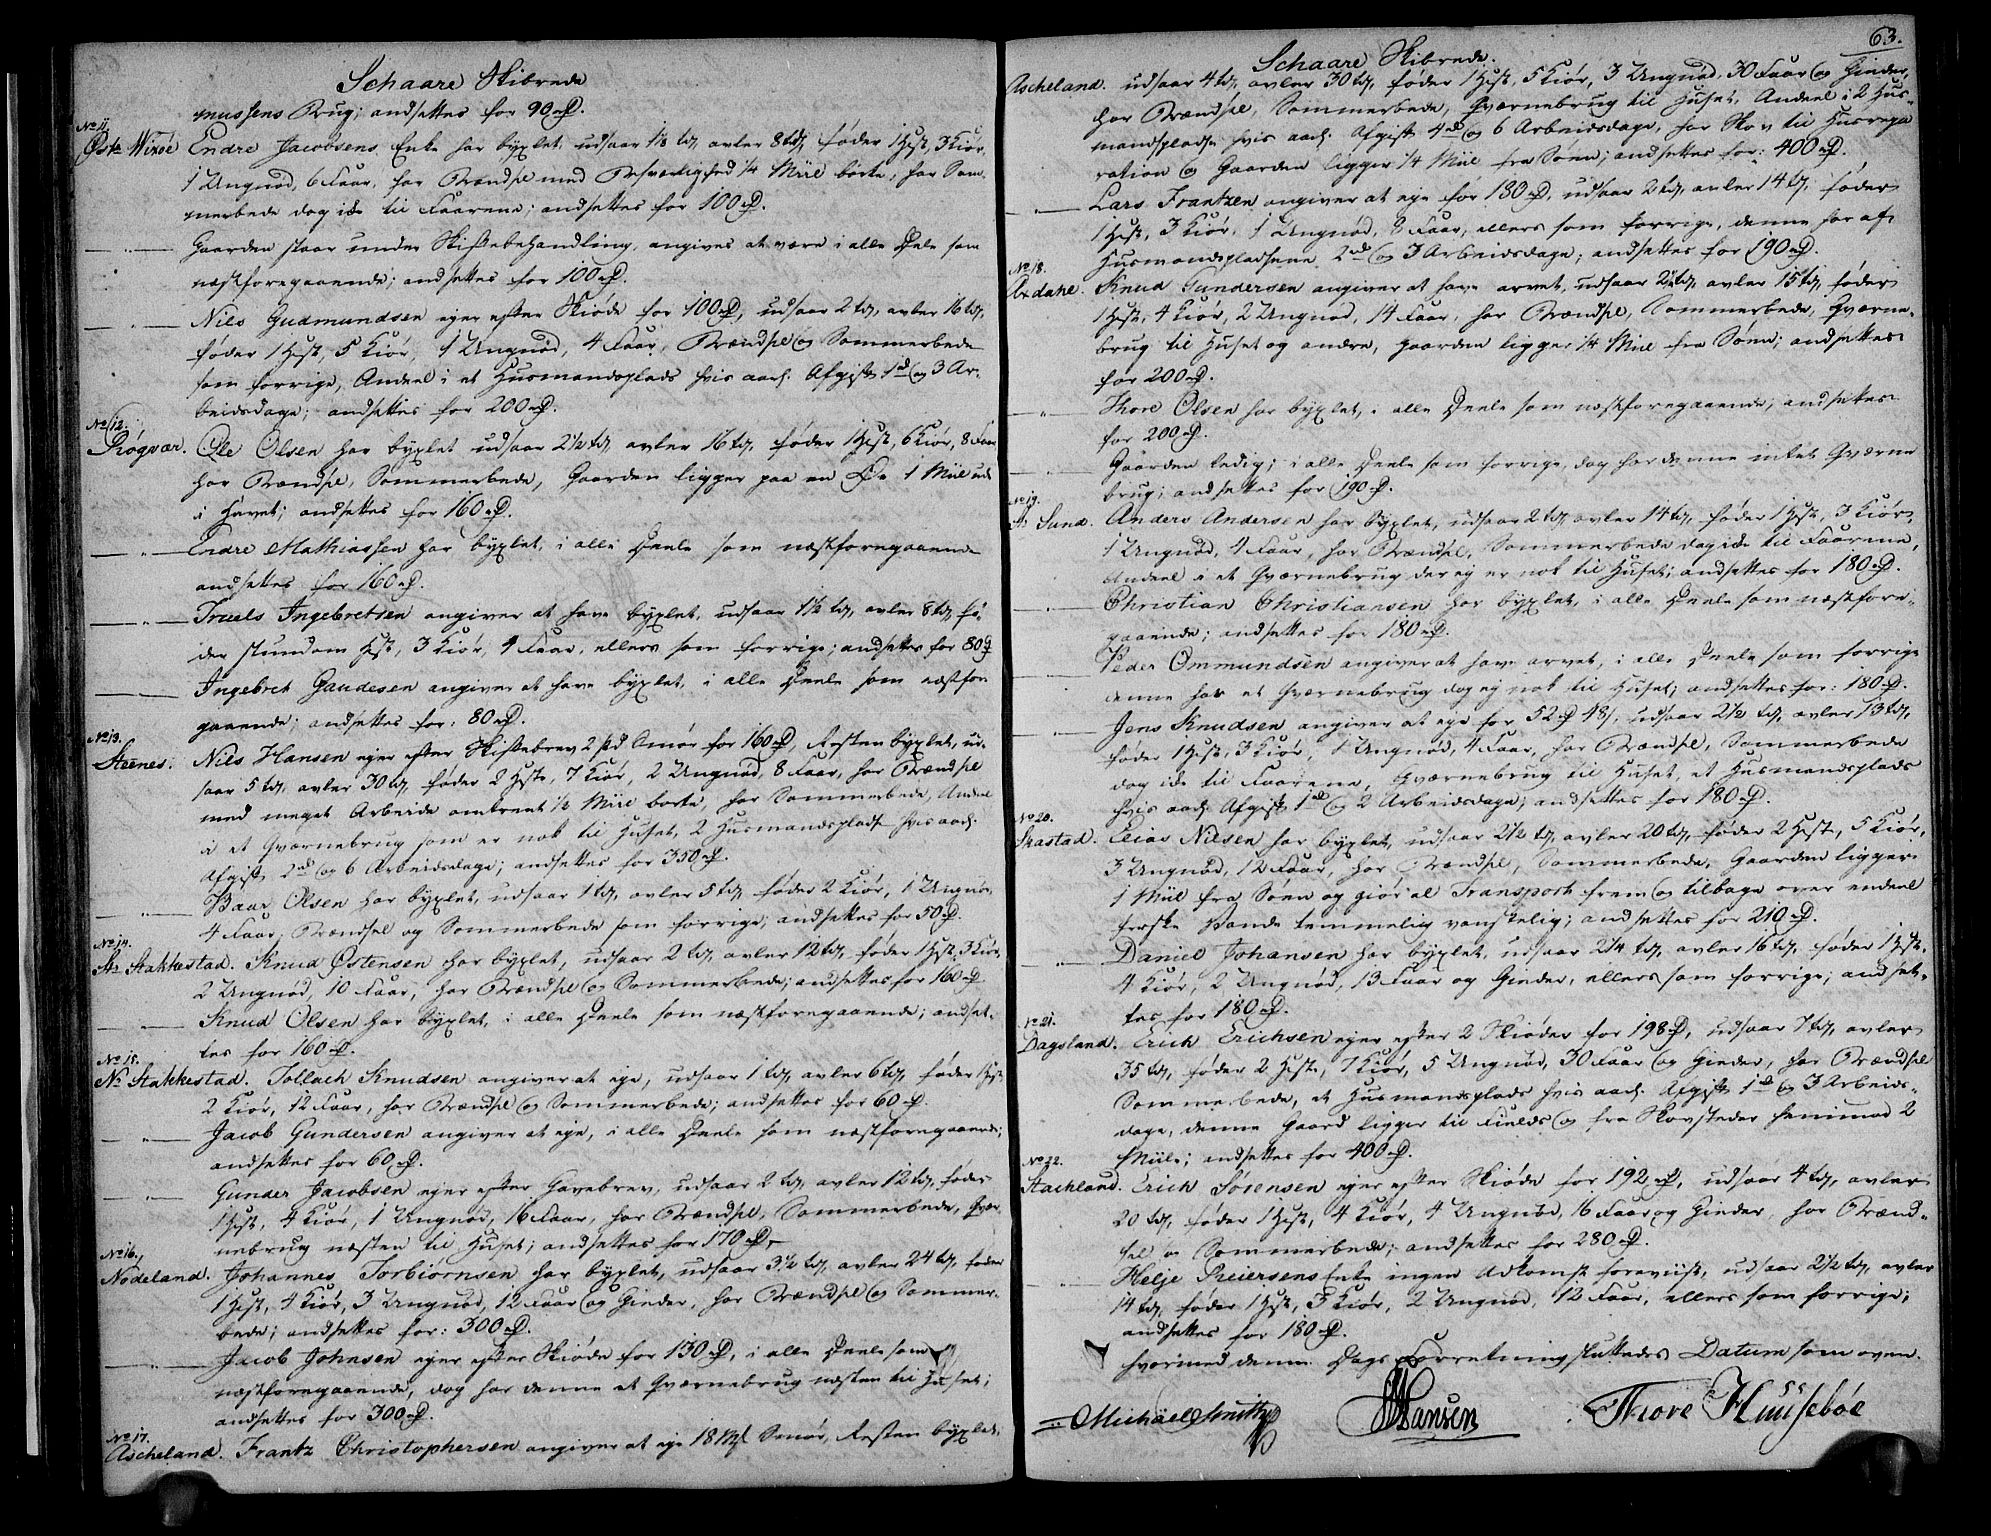 Schaare Skibrede
mussens Brug; andsettes for 90 rD.
No 11.
Østr Wixøe Endre Jacobsens Enke har byxlet, udsaar 1½ td, avler 8 td, føder 1 Hest, 3 Kiør,
1 Ungnød, 6 Faar, har Brændsel med Besværlighed ¼ Miil borte, har Som-
merbede dog ikke til Faarene; andsettes for 100 rD.
Gaarden staar under Skiftebehandling, angives at være i alle Deele som
næstforegaaende; andsettes for 100 rD.
Nils Gudmundsen ejer efter Skiøde for 100 rD, udsaar 2 td, avler 16 td,
føder 1 Hest, 5 Kiør, 1 Ungnød, 4 Faar, Brændsel og Sommerbede
som forrige, Andeel i et Husmandsplads hvis aarl. Afgift 1 rd og 3 Ar-
beidsdage; andsettes for 200 rD.
No 12.
Røgvær. Ole Olsen har byxlet udsaar 2½ td, avler 16 td, føder 1 Hest, 6 Kiør, 8 Faar
har Brændsel, Sommerbede, Gaarden ligger paa en Øe 1 Miil ud
i Havet; andsettes for 160 rD.
Endre Mathiassen har byxlet, i alle Deele som næstforegaaende
andsettes for 160 rD.
Truels Ingebretsen angiver at have byxlet, udsaar 1½ td, avler 8 td, fø-
der stundom Hest, 3 Kiør, 4 Faar, ellers som forrige; andsettes for 80 rD
Ingebret Gaudesen angiver at have byxlet, i alle Deele som næstfor
gaaende; andsettes for: 80 rD.
No 13.
Steenes. Nils Hansen ejer efter Skiftebrev 2 pd Smør for 160 rD, Resten byxlet, ud-
saar 5 td, avler 30 td, føder 2 Heste, 7 Kiør, 2 Ungnød, 8 Faar, har Brændsel
med meget Arbeide omtrent ½ Miil borte, har Sommerbede, Andeel
i et Qværnebrug som er nok til Huset, 2 Husmandspladse hvis aarl.
Afgift 2 rd og 6 Arbeidsdage; andsettes for 350 rD.
Baar Olsen har byxlet, udsaar 1 td, avler 5 td, føder 2 Kiør, 1 Ungnød,
4 Faar, Brændsel og Sommerbede som forrige; andsettes for 50 rD.
No 14.
Sr Stakkestad. Knud Østensen har byxlet, udsaar 2 td, avler 12 td, føder 1 Hest, 3 Kiør,
2 Ungnød, 10 Faar, har Brændsel og Sommerbede; andsettes for 160 rD
Knud Olsen har byxlet, i alle Deele som næstforegaaende; andset-
tes for 160 rD.
No 15.
Nr Stakkestad. Tollach Knudsen angiver at eje, udsaar 1 td, avler 6 td, føder 1 Hest
2 Kiør, 12 Faar, har Brændsel og Sommerbede; andsettes for 60 rD.
Jacob Gundersen angiver at eje, i alle Deele som næstforegaaende;
andsettes for 60 rD.
Gunder Jacobsen ejer efter Gavebrev, udsaar 2 td, avler 12 td, føder
1 Hest, 4 Kiør, 1 Ungnød, 16 Faar, har Brændsel, Sommerbede, Qvær-
nebrug næsten til Huset; andsettes for 170 rD.
No 16.
Nodeland. Johannes Torbiørnsen har byxlet, udsaar 3½ td, avler 24 td, føder
1 Hest, 4 Kiør, 3 Ungnød, 12 Faar og Gieder, har Brændsel og Sommer-
bede; andsettes for: 300 rD.
Jacob Johnsen ejer efter Skiøde for 130 rD, i alle Deele som
næstforegaaende, dog har denne et Qværnebrug næsten til Huset;
andsettes for 300 rD.
No 17.
Ascheland. Frantz Christophersen angiver at eje 18 Mk Smør, Resten byxlet,
63.
Schaare Skibrede.
Ascheland. udsaar 4 td, avler 30 td, føder 1 Hest, 5 Kiør, 3 Ungnød, 30 Faar og Gieder,
har Brændsel, Sommerbede, Qværnebrug til Huset, Andeel i 2 Hus-
mandspladse hvis aarl. Afgift 4 rd og 6 Arbeidsdage, har Skov til Husrepa
ration og Gaarden ligger ¼ Miil fra Søen; andsettes for: 400 rD.
Lars Frantzen angiver at eje for 180 rD, udsaar 2 td, avler 14 td, føder
1 Hest, 3 Kiør, 1 Ungnød, 8 Faar, ellers som forrige, denne har af
Husmandspladsene 2 rd og 3 Arbeidsdage; andsettes for 190 rD.
No 18.
Ardahe. Knud Gundersen angiver at have arvet, udsaar 2½ td, avler 15 td, føder
1 Hest, 4 Kiør, 2 Ungnød, 14 Faar, har Brændsel, Sommerbede, Qværne-
brug til Huset og andre, gaarden ligger ¼ Miil fra Søen; andsettes
for 200 rD.
Thore Olsen har byxlet, i alle Deele som næstforegaaende; andsettes
for 200 rD.
Gaarden ledig; i alle Deele som forrige, dog har denne intet Qværne
brug; andsettes for 190 rD.
No 19.
Sr Sund. Anders Andersen har byxlet, udsaar 2 td, avler 14 td, føder 1 Hest, 3 Kiør,
1 Ungnød, 4 Faar, har Brændsel, Sommerbede dog ikke til Faarene,
Andeel i et Qværnebrug der ej er nok til Huset; andsettes for 180 rD.
Christian Christiansen har byxlet, i alle Deele som næstfore-
gaaende; andsettes for 180 rD.
Peder Ommundsen angiver at have arvet, i alle Deele som forrige
denne har et Qværnebrug dog ej nok til Huset; andsettes for: 180 rD.
Jens Knudsen angiver at eje for 52 rD 48 s, udsaar 2½ td, avler 13 td,
føder 1 Hest, 3 Kiør, 1 Ungnød, 4 Faar, har Brændsel, Sommerbede
dog ikke til Faarene, Qværnebrug til Huset, et Husmandsplads
hvis aarl. Afgift 1 rd og 2 Arbeidsdage; andsettes for 180 rD.
No 20.
Skastad. Elias Nilsen har byxlet, udsaar 2½ td, avler 20 td, føder 2 Hest, 5 Kiør,
3 Ungnød, 12 Faar, har Brændsel, Sommerbede, Gaarden ligger
1 Miil fra Søen og giør al Transport frem og tilbage over endeel
ferske Vande temmelig vanskelig; andsettes for 210 rD.
Daniel Johansen har byxlet, udsaar 2¼ td, avler 16 td, føder 1 Hest,
4 Kiør, 2 Ungnød, 13 Faar og Gieder, ellers som forrige; andset-
tes for 180 rD.
No 21.
Dagsland. Erich Erichsen ejer efter 2 Skiøder for 198 rD, udsaar 7 td, avler
35 td, føder 2 Heste, 7 Kiør, 5 Ungnød, 30 Faar og Gieder, har Brændsel
Sommerbede, et Husmandsplads hvis aarl. Afgift 1 rd og 3 Arbeids-
dage, denne Gaard ligger til Fields og fra Skovsteder henimod 2
Miile; andsettes for 400 rD.
No 22.
Stachland. Erich Sørensen ejer efter Skiøde for 192 rD, udsaar 4 td, avler
20 td, føder 1 Hest, 4 Kiør, 4 Ungnød, 16 Faar og Gieder, har Brænd-
sel og Sommerbede; andsettes for 280 rD.
Helje Reiersens Enke ingen Adkomst foreviist, udsaar 2½ td, avler
14 td, føder 1 Hest, 3 Kiør, 2 Ungnød, 12 Faar, ellers som forrige;
andsettes for 180 rD.
Hvormed denne Dags Forretning sluttedes Datum som oven.
Michael Smith Hansen Thore Huusebøe